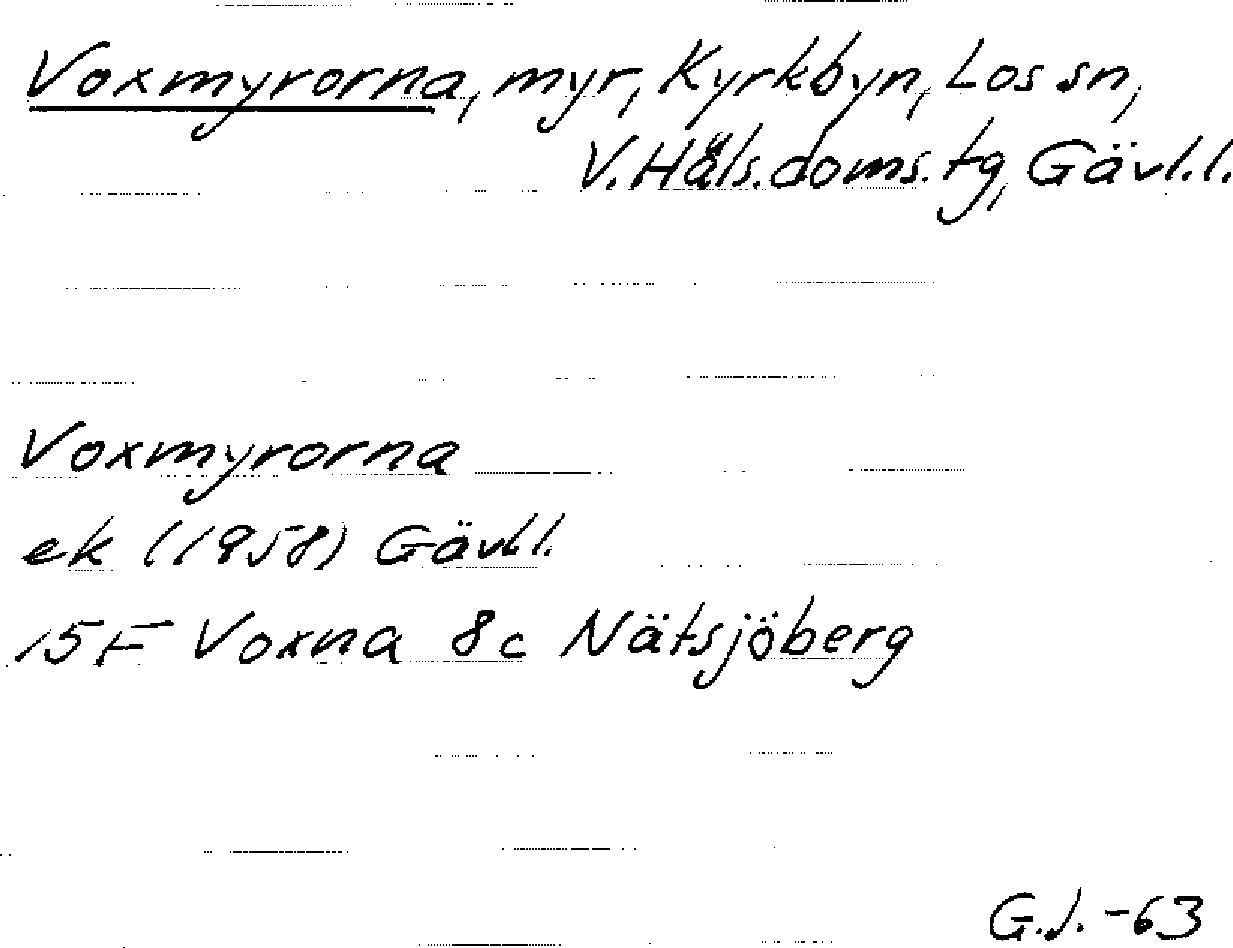 Voxmyrorna, myr, Kyrkbyn, Los sn,
V. Häls. doms. tg, Gävl. l.
Voxmyrorna
ek (1958) Gävl. l.
15F Voxna 8c Nätsjöberg
G.J. -63